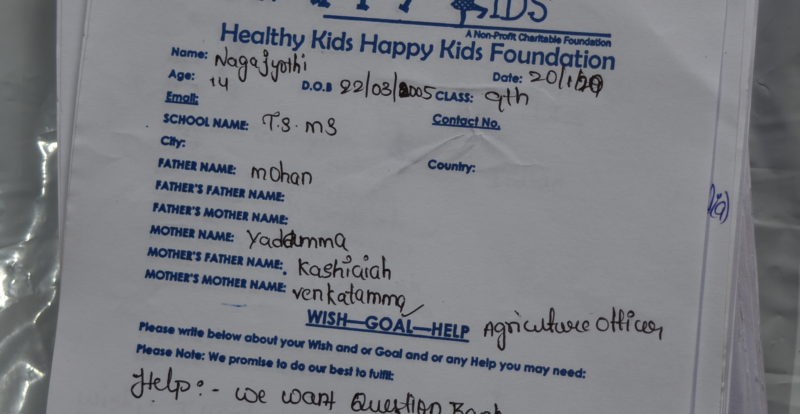 KIDS
A Non-Profit Charitable Foundation
Healthy Kids Happy Kids Foundation
Name: Nagajyothi
Date: 20/1/20
Age: 14 D.O.B 22/03/2005 CLASS: 9th
Email:
SCHOOL NAME: T.S. MS Contact No.
City:
FATHER NAME: mohan Country:
FATHER'S FATHER NAME:
FATHER'S MOTHER NAME:
MOTHER NAME: Yadamma
MOTHER'S FATHER NAME: Kashiaiah
MOTHER'S MOTHER NAME: venkatamma
WISH—GOAL—HELP Agriculture Officer
Please write below about your Wish and or Goal and or any Help you may need:
Please Note: We promise to do our best to fulfil:
Help:- we want Question Bank